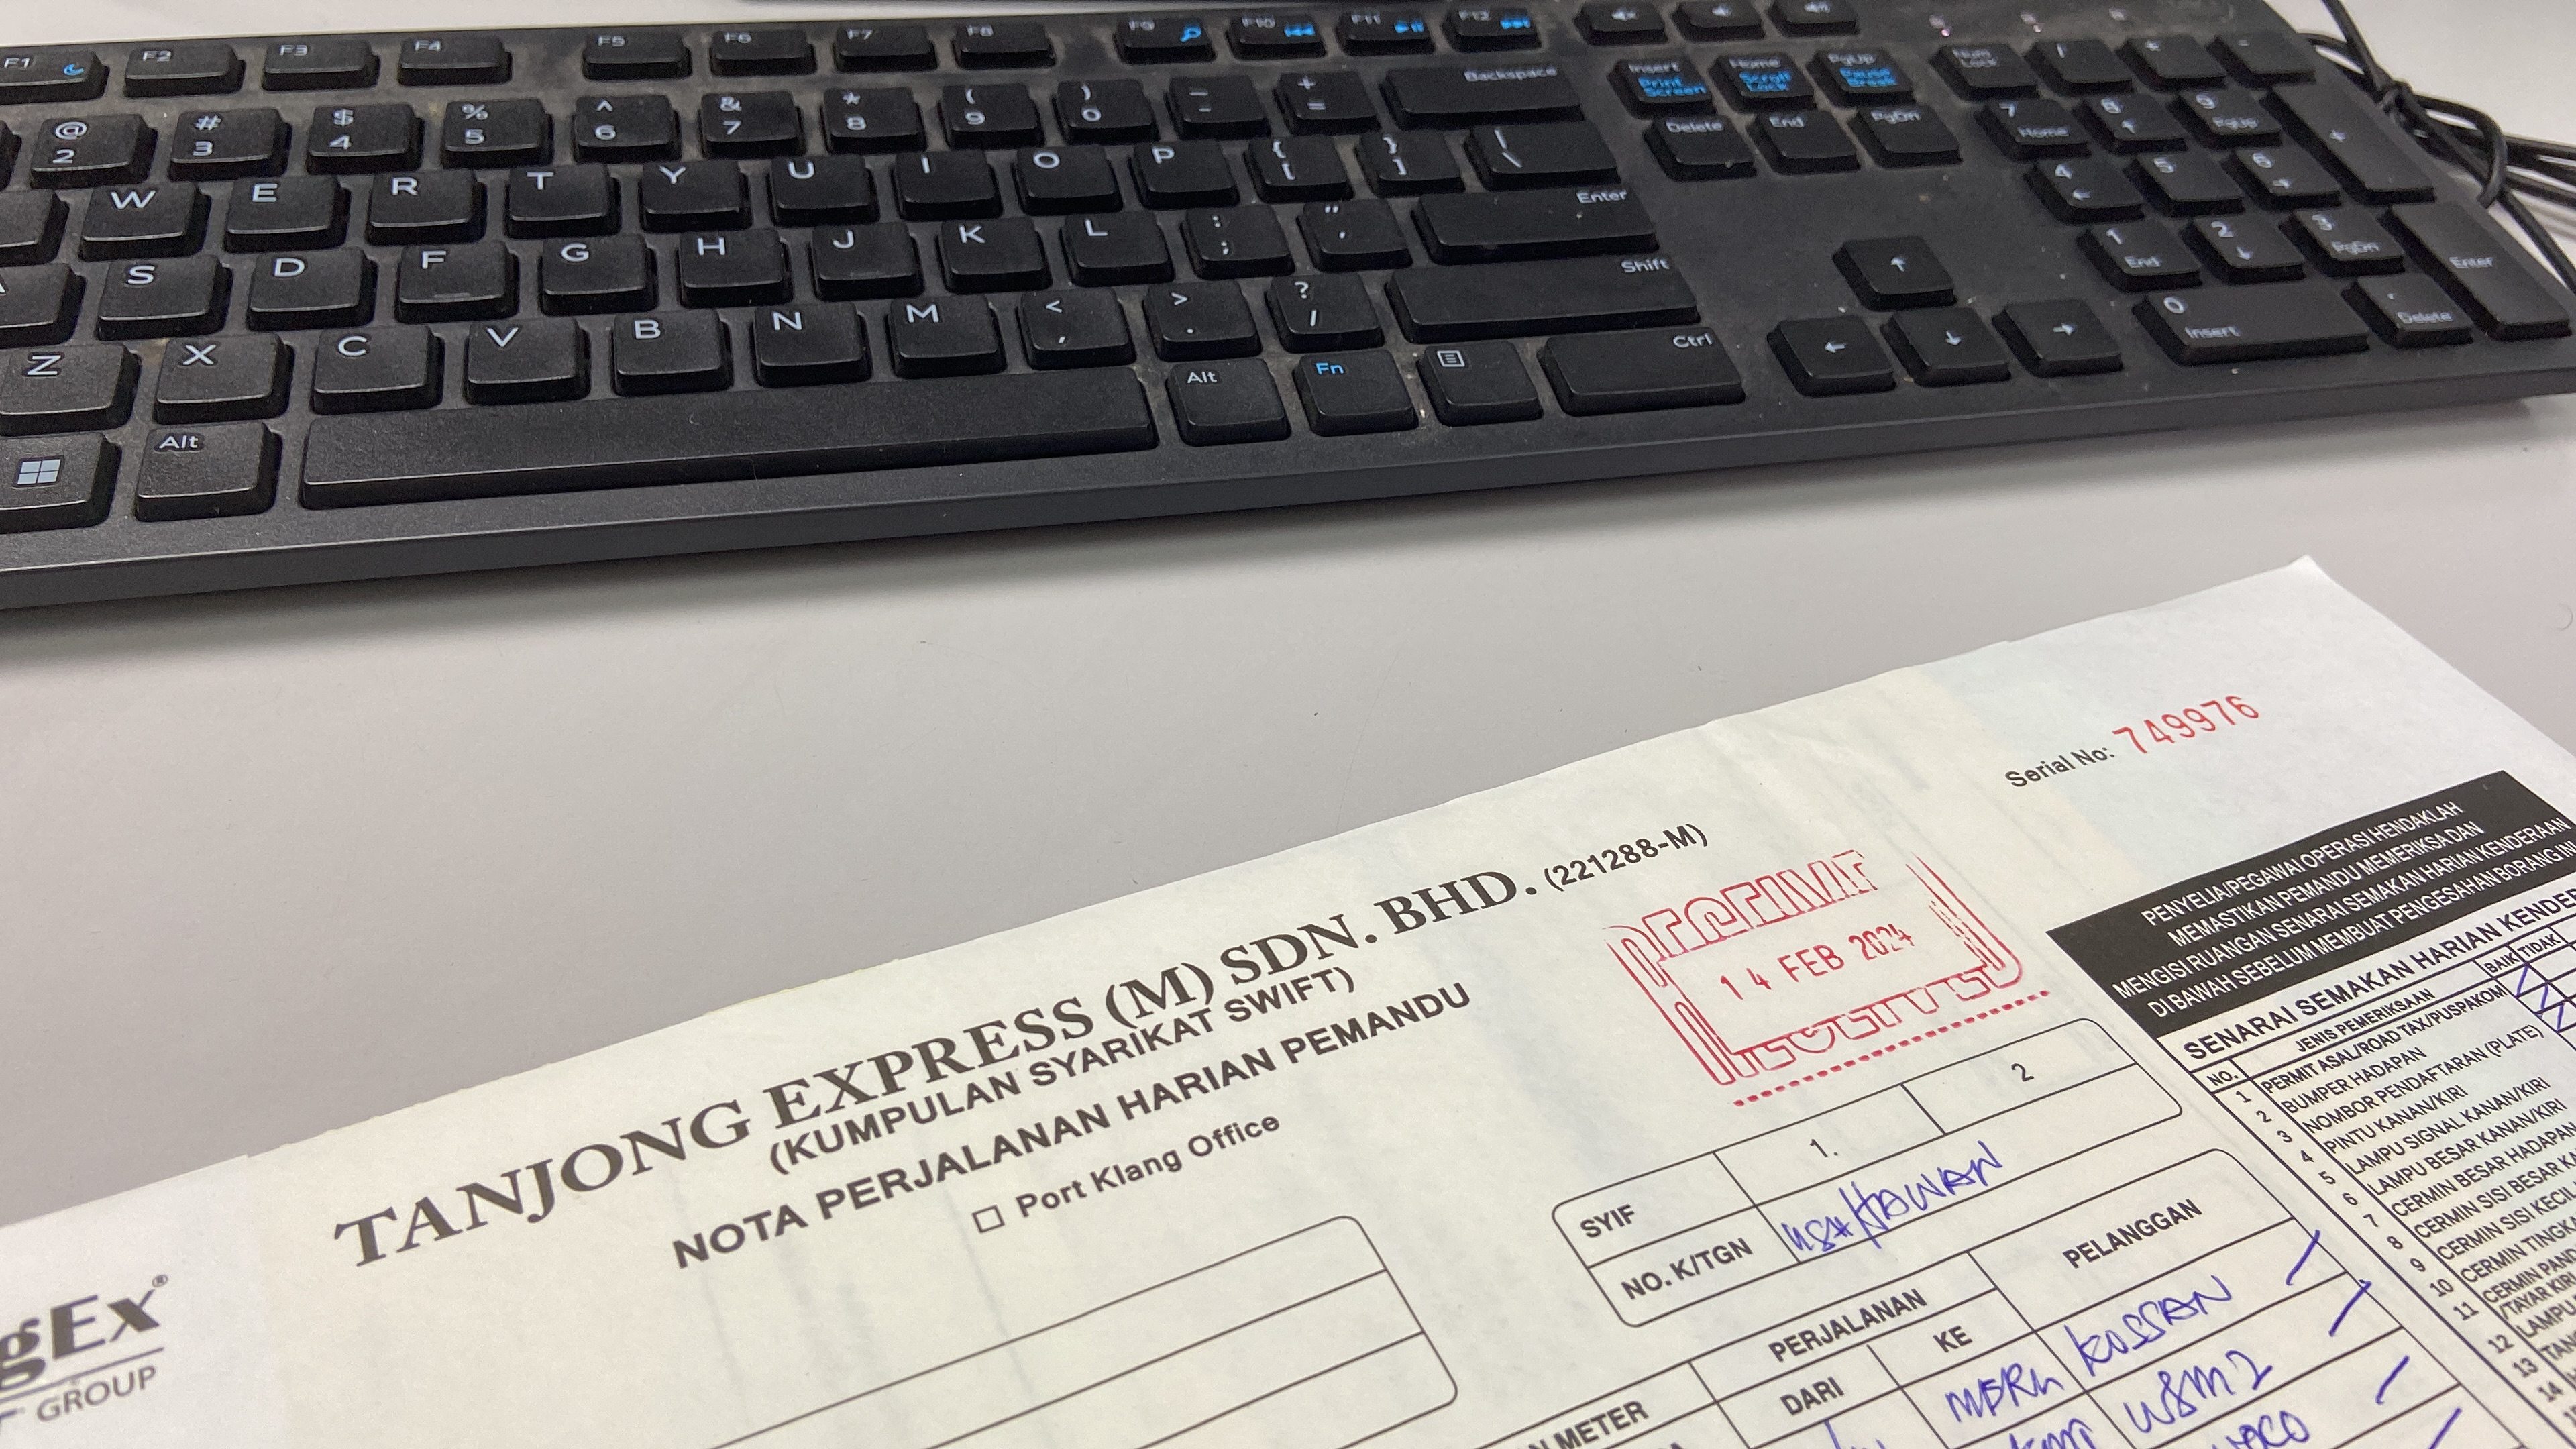 F1 F2 F3 F4 F5 F6 F7 F8 F9 F10 F11 F12
@ 2 # 3 $ 4 % 5 ^ 6 & 7 * 8 ( 9 ) 0 _ - + = Backspace Insert Print Screen Home Scroll Lock PgUp Pause Break Num Lock / * -
W E R T Y U I O P { [ } ] | \ Delete End PgDn 7 Home 8 ↑ 9 PgUp +
S D F G H J K L : ; " ' Enter 4 ← 5 6 →
Z X C V B N M < , > . ? / Shift ↑ 1 End 2 ↓ 3 PgDn Enter
Alt Alt Fn Ctrl ← ↓ → 0 Insert . Delete
Serial No: 749976
TANJONG EXPRESS (M) SDN. BHD. (221288-M)
(KUMPULAN SYARIKAT SWIFT)
NOTA PERJALANAN HARIAN PEMANDU
□ Port Klang Office
gEx®
GROUP
14 FEB 2024
SYIF 1. 2
NO. K/TGN
PERJALANAN PELANGGAN
METER DARI KE
KOSSAN
W&M2
PENYELIA/PEGAWAI OPERASI HENDAKLAH
MEMASTIKAN PEMANDU MEMERIKSA DAN
MENGISI RUANGAN SENARAI SEMAKAN HARIAN KENDERAAN
DI BAWAH SEBELUM MEMBUAT PENGESAHAN BORANG INI
SENARAI SEMAKAN HARIAN
NO. JENIS PEMERIKSAAN BAIK TIDAK
1 PERMIT ASAL/ROAD TAX/PUSPAKOM
2 BUMPER HADAPAN
3 NOMBOR PENDAFTARAN (PLATE)
4 PINTU KANAN/KIRI
5 LAMPU SIGNAL KANAN/KIRI
6 LAMPU BESAR KANAN/KIRI
7 CERMIN BESAR HADAPAN
8 CERMIN SISI BESAR
9 CERMIN SISI
10 CERMIN
11 CERMIN
/TAYAR KIRI
12
13
14